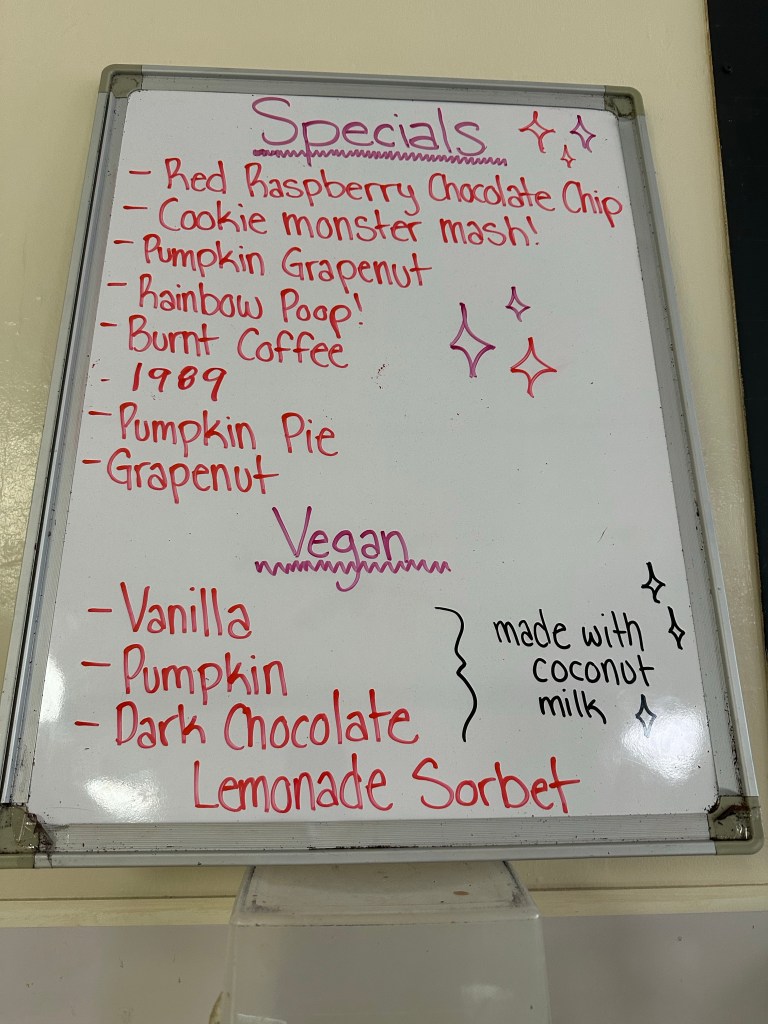 Specials
- Red Raspberry Chocolate Chip
- Cookie monster mash!
- Pumpkin Grapenut
- Rainbow Poop!
- Burnt Coffee
- 1989
- Pumpkin Pie
- Grapenut
Vegan
- Vanilla
- Pumpkin
- Dark Chocolate
made with
coconut
milk
Lemonade Sorbet